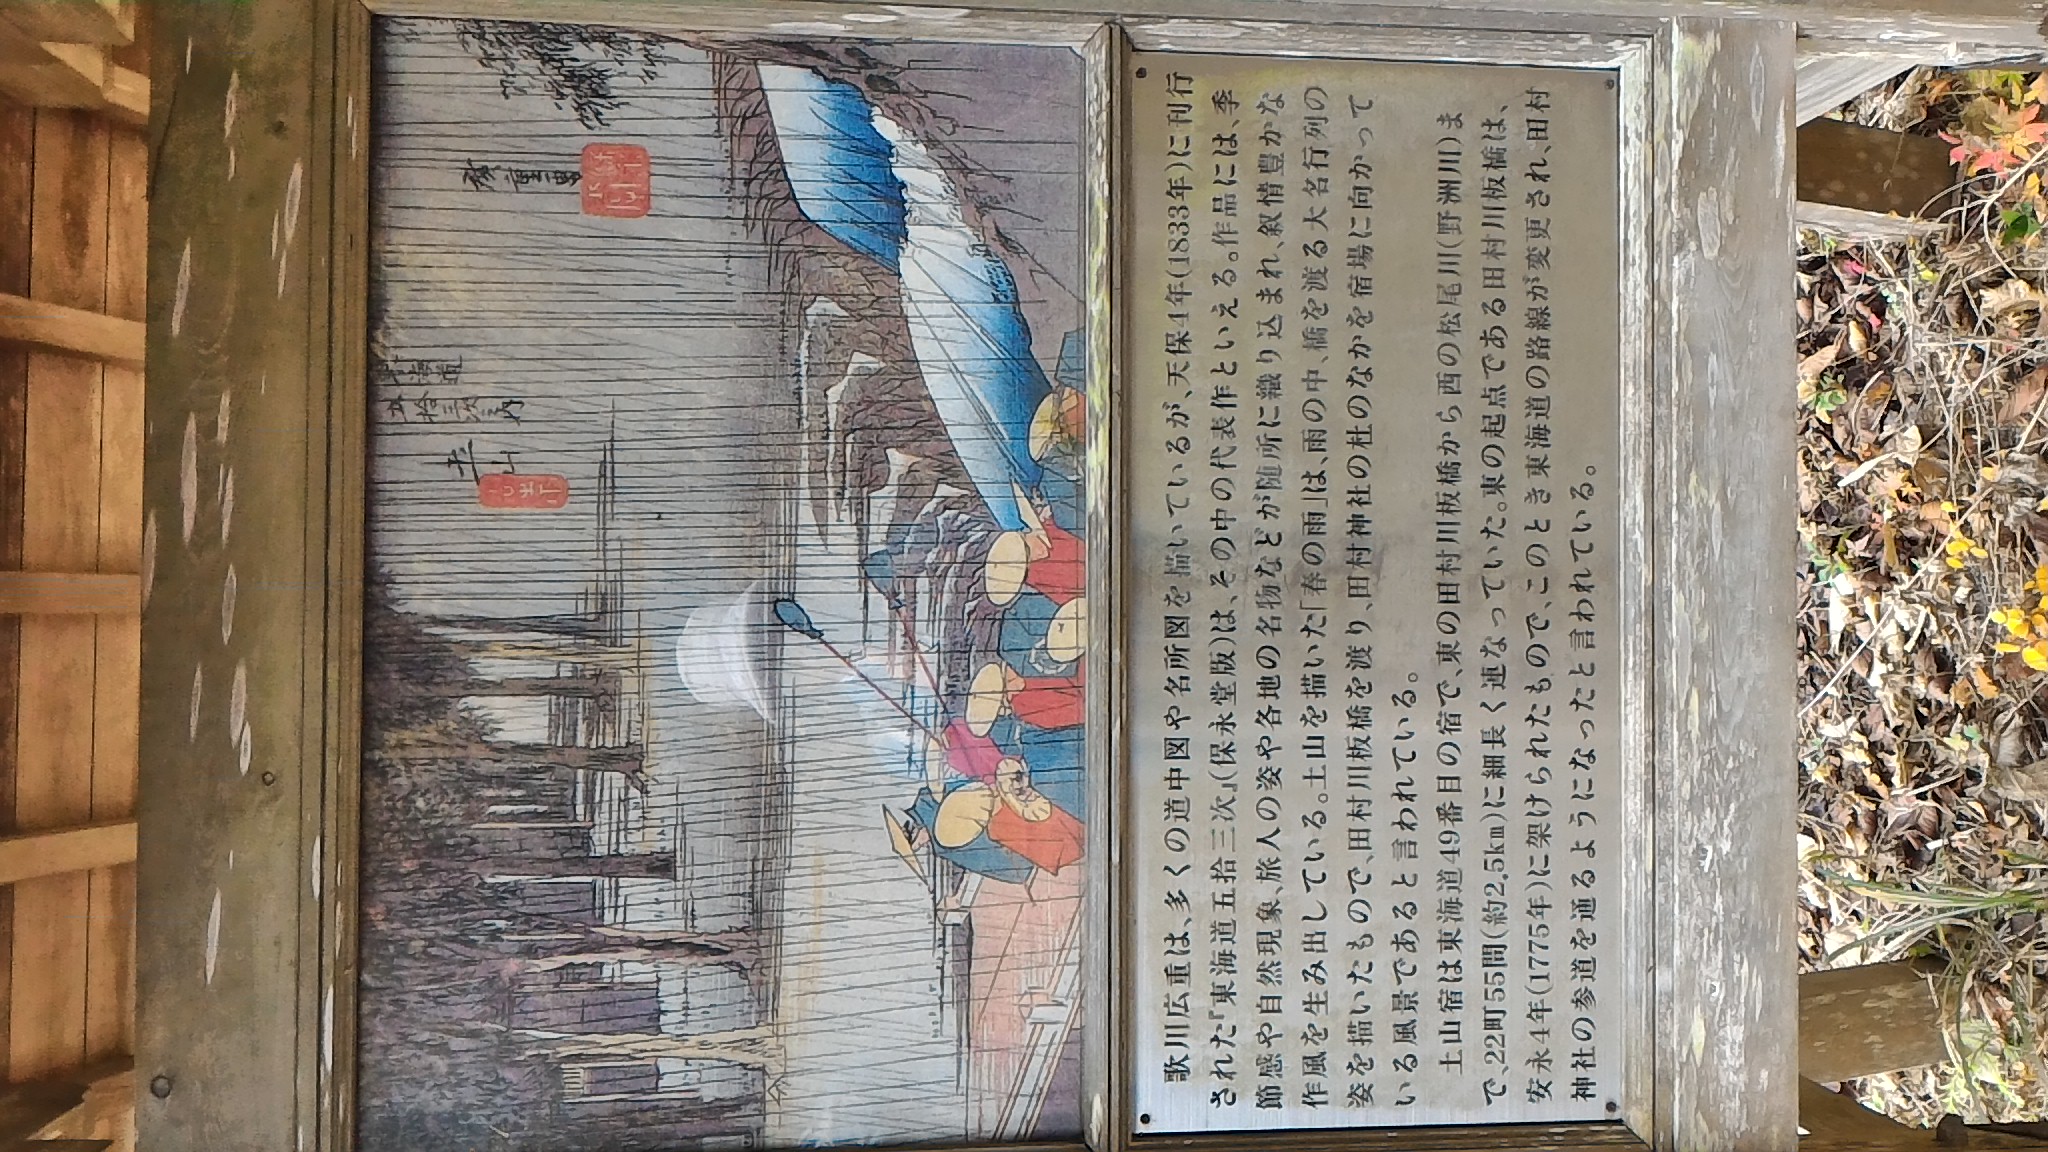 東海道
五拾三次ノ内
土山
廣重畫
歌川広重は、多くの道中図や名所図を描いているが、天保4年(1833年)に刊行
された『東海道五拾三次』(保永堂版)は、その中の代表作といえる。作品には、季
節感や自然現象、旅人の姿や各地の名物などが随所に織り込まれ、叙情豊かな
作風を生み出している。土山を描いた「春の雨」は、雨の中、橋を渡る大名行列の
姿を描いたもので、田村川板橋を渡り、田村神社の杜のなかを宿場に向かって
いる風景であると言われている。
土山宿は東海道49番目の宿で、東の田村川板橋から西の松尾川(野洲川)ま
で、22町55間(約2.5km)に細長く連なっていた。東の起点である田村川板橋は、
安永4年(1775年)に架けられたもので、このとき東海道の路線が変更され、田村
神社の参道を通るようになったと言われている。